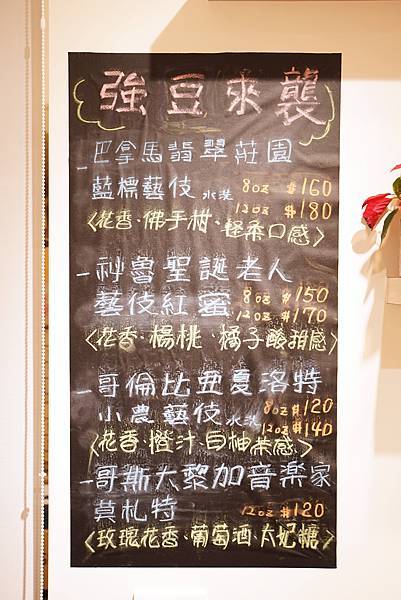 強豆來襲
-巴拿馬翡翠莊園
藍標藝伎 水洗 8oz $160
12oz $180
<花香、佛手柑、輕柔口感>
-神魯聖誕老人
藝伎紅蜜 8oz $150
12oz $170
<花香、楊桃、橘子酸甜感>
-哥倫比亞夏洛特
小農藝伎 水洗 8oz $120
12oz $140
<花香、橙汁、白柚茶感>
-哥斯大黎加音楽家
莫札特 12oz $120
<玫瑰花香、葡萄酒、太妃糖>